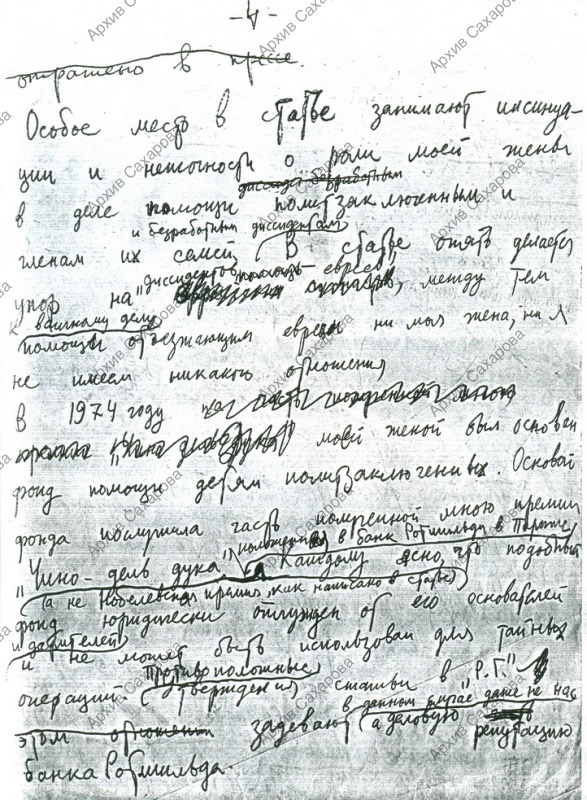 - 4 -
отражено в прессе.
Особое место в статье занимают инсинуа-
ции и неточности о роли моей жены
в деле помощи политзаключенным и
и безработным диссидентам
членам их семей. В статье опять делается
упор на "диссидентов евреев", между тем
к важному делу
помощи отъезжающим евреям ни моя жена, ни я
не имеем никакого отношения
В 1974 году моей женой был основан
фонд помощи детям политзаключенных. Основой
фонда послужила часть полученной мною премии
"Чино-дель дука" (положенная в банк Ротшильда в Париже,
а не Нобелевская премия, как написано в статье)
Каждому ясно, что подобный
фонд юридически отчужден от его основателей
и дарителей
и не может быть использован для тайных
операций. Противоположные
утверждения статьи в "Р.Г."
в данном случае даже не нас
этом отношении задевают, а деловую репутацию
банка Ротшильда.
Архив Сахарова